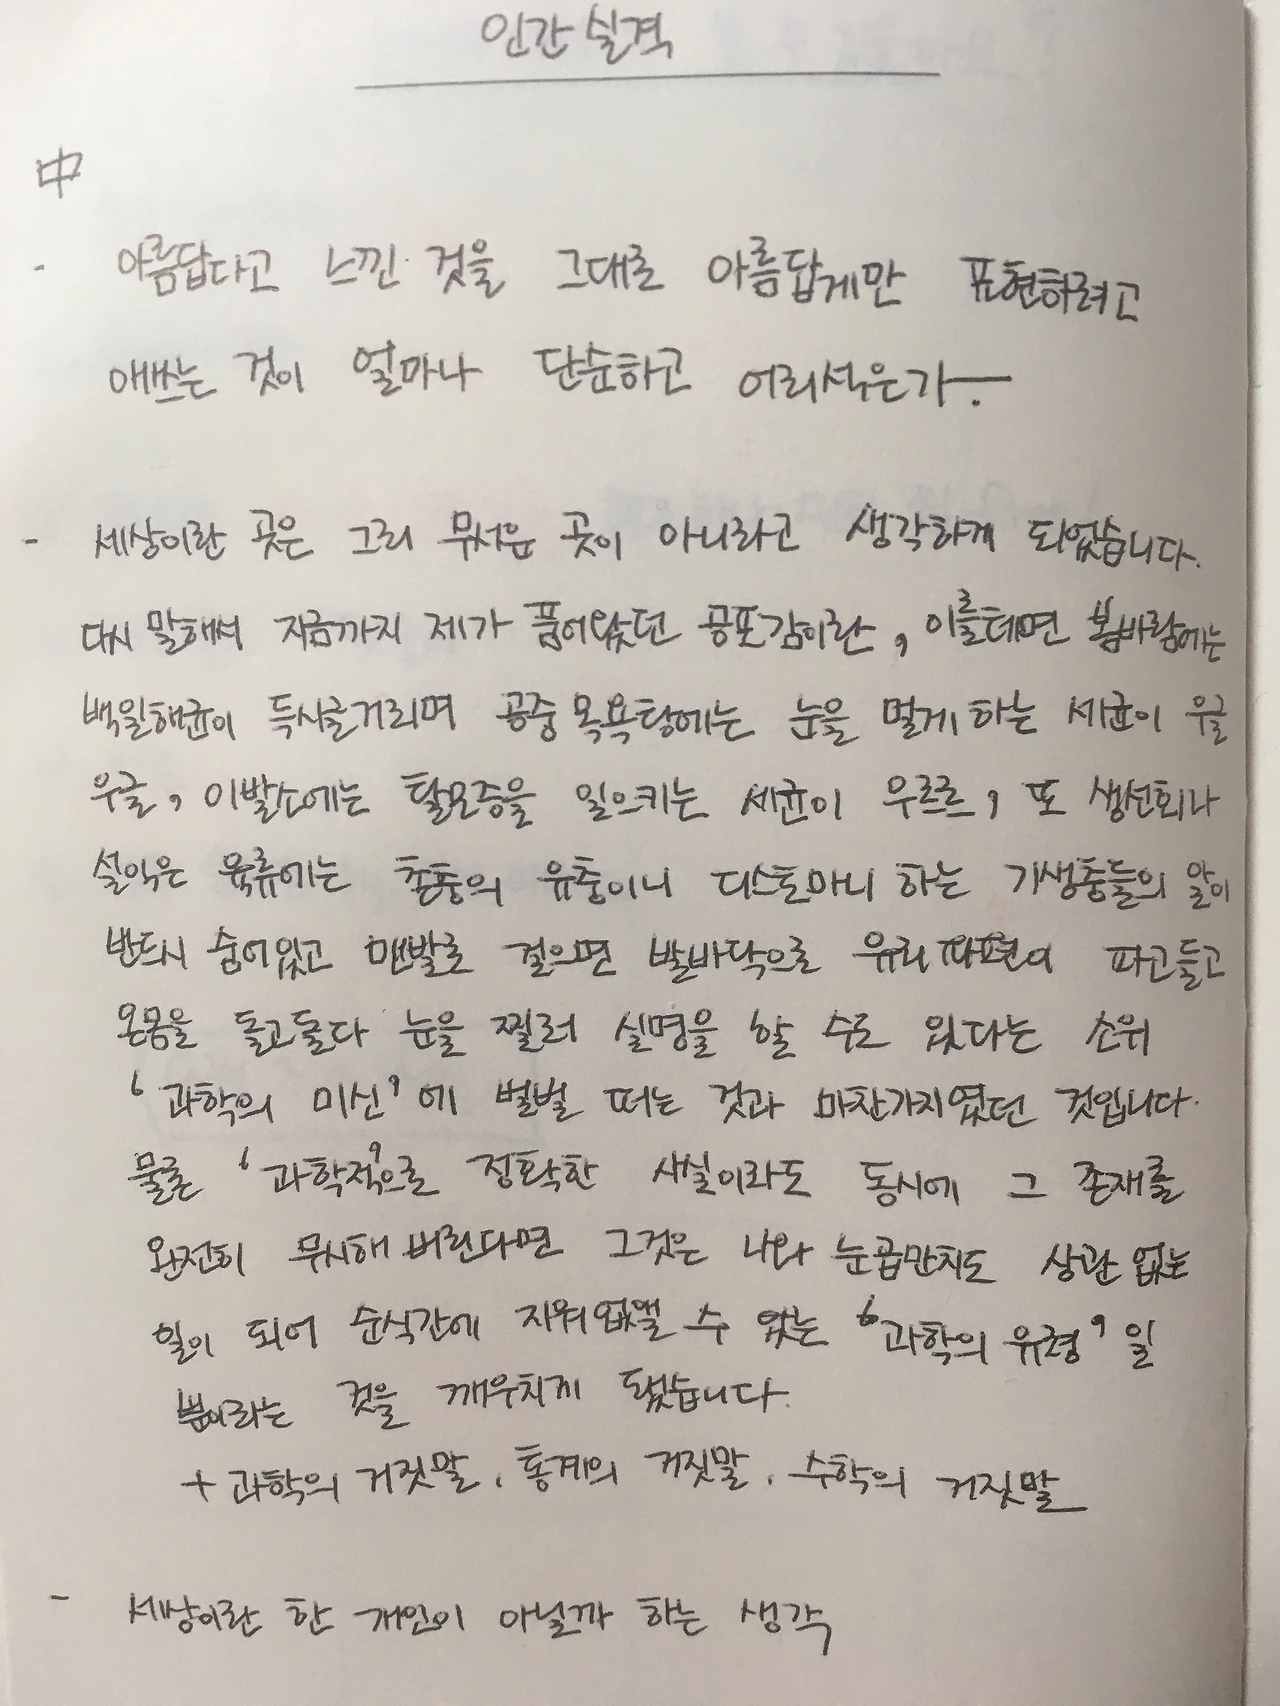 인간실격
中
- 아름답다고 느낀 것을 그대로 아름답게만 표현하려고
애쓰는 것이 얼마나 단순하고 어리석은가.
- 세상이란 곳은 그리 무서운 곳이 아니라고 생각하게 되었습니다.
다시 말해서 지금까지 제가 품어왔던 공포감이란, 이를테면 봄바람에는
백일해균이 득시글거리며 공중목욕탕에는 눈을 멀게 하는 세균이 우글
우글, 이발소에는 탈모증을 일으키는 세균이 우르르, 또 생선회나
설익은 육류에는 촌충의 유충이니 디스토마니 하는 기생충들의 알이
반드시 숨어있고 맨발로 걸으면 발바닥으로 유리파편이 파고들고
온몸을 돌고돌다 눈을 찔러 실명을 할 수도 있다는 소위
'과학의 미신'에 벌벌 떠는 것과 마찬가지였던 것입니다.
물론 '과학적'으로 정확한 사실이라도 동시에 그 존재를
완전히 무시해 버린다면 그것은 나와 눈곱만치도 상관 없는
일이 되어 순식간에 지워 없앨 수 있는 '과학의 유령' 일
뿐이라는 것을 깨우치게 됐습니다.
+ 과학의 거짓말, 통계의 거짓말, 수학의 거짓말
- 세상이란 한 개인이 아닐까 하는 생각